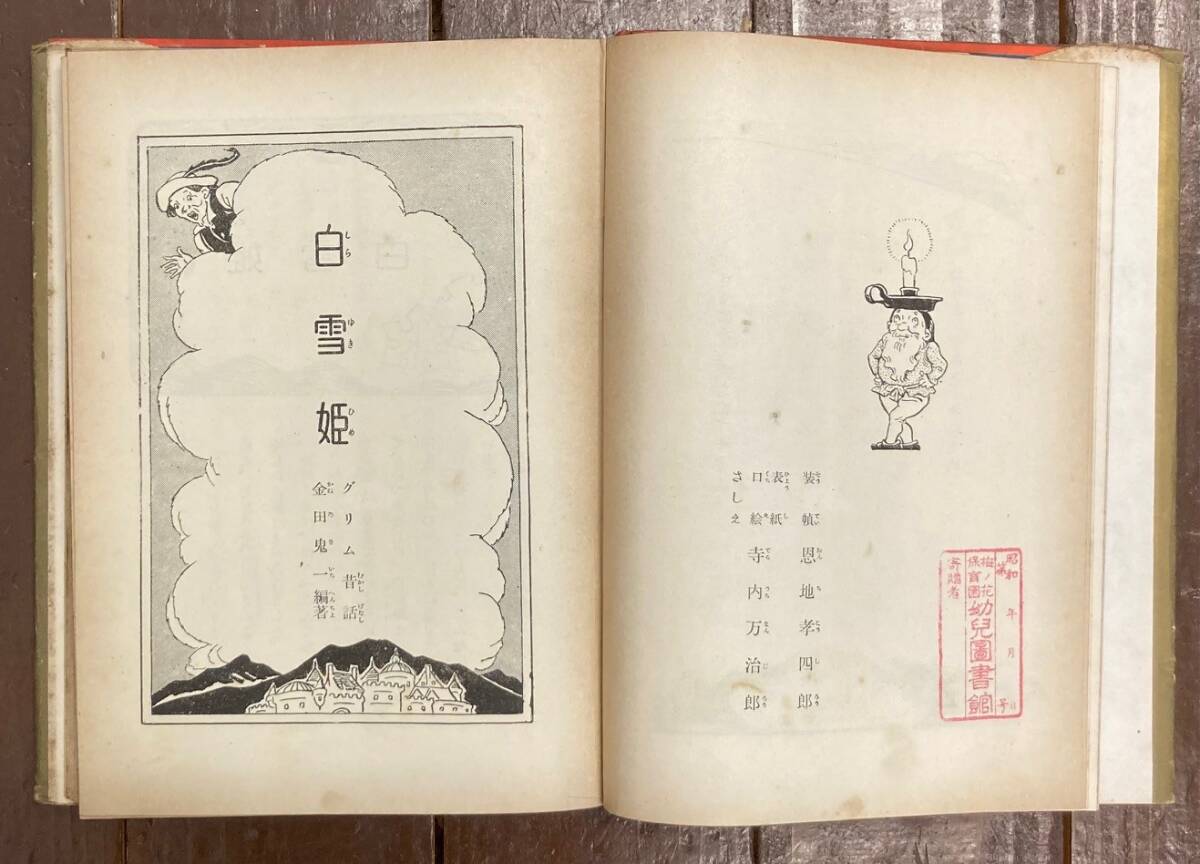 装幀 恩地孝四郎
表紙
口絵 寺内万治郎
さしえ
昭和 年 月 日
第 号
梅ノ花
保育園
幼兒圖書館
寄贈者
白雪姫
グリム昔話
金田鬼一編著